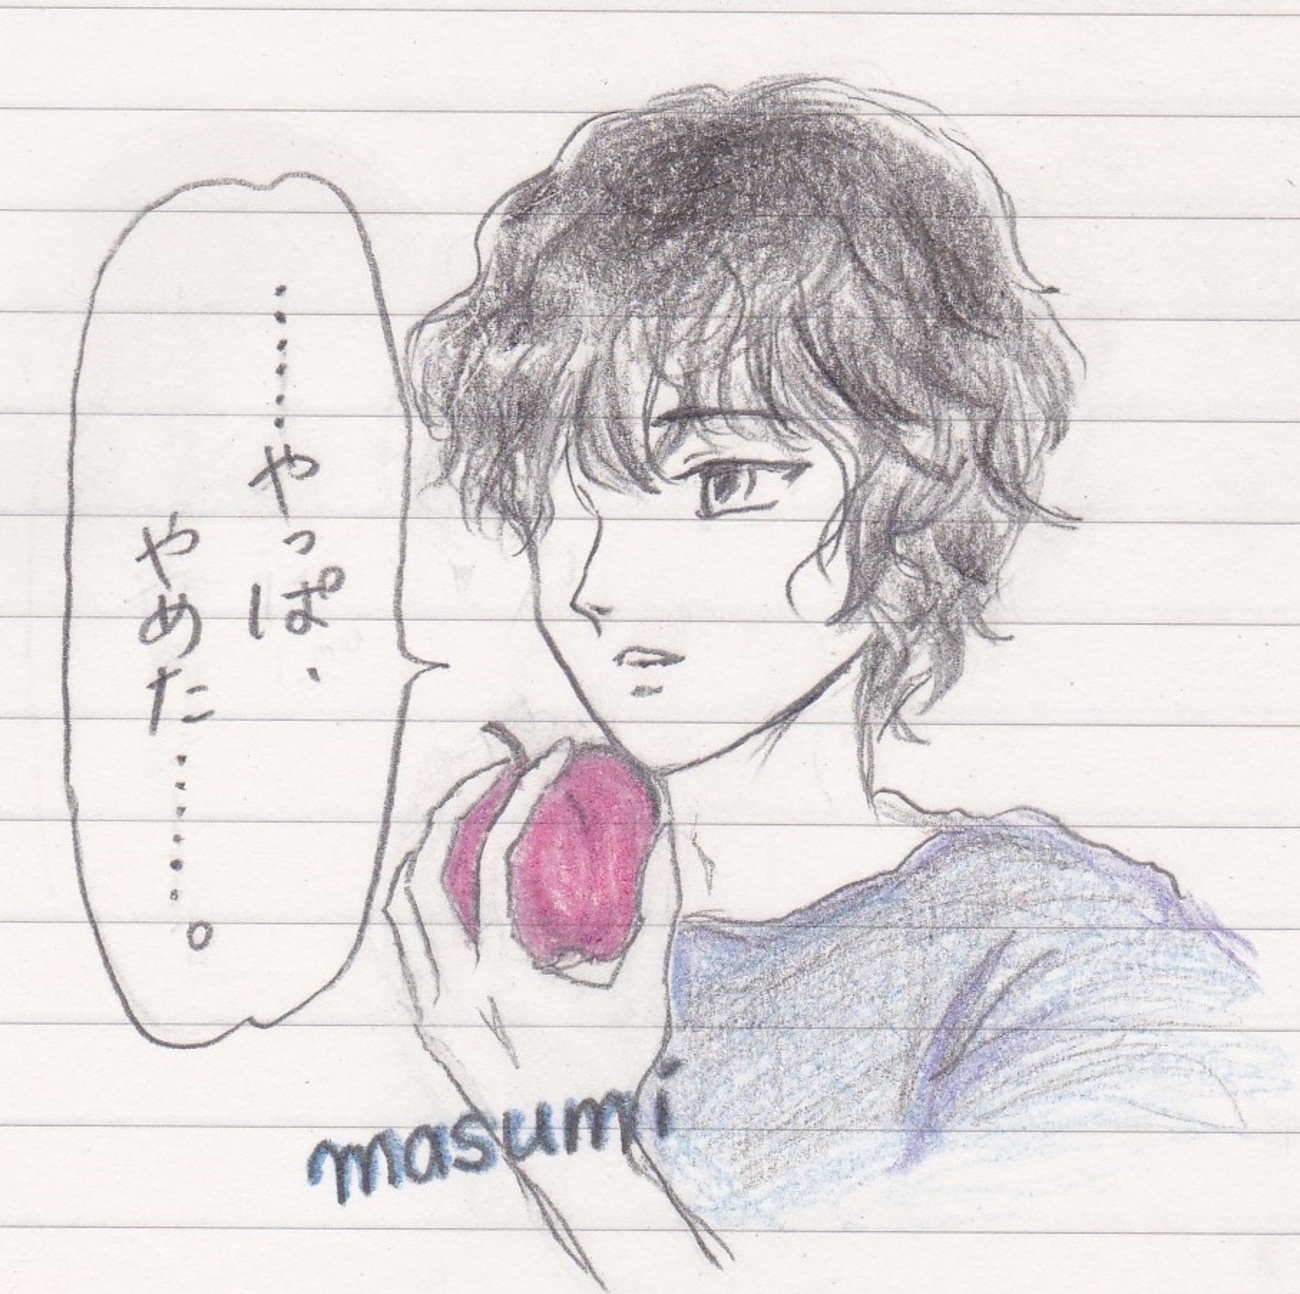 ……やっぱ、
やめた……。
masumi